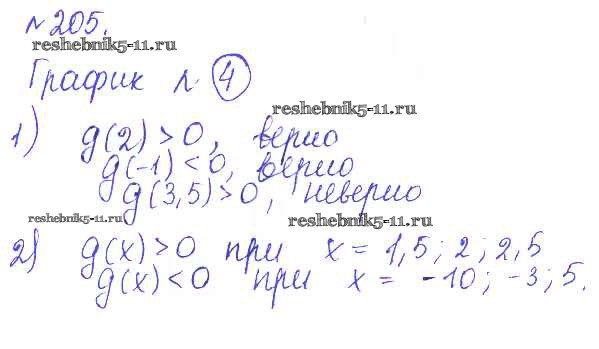 № 205.
reshebnik5-11.ru
График № 4
reshebnik5-11.ru
1) g(2) > 0, верно
g(-1) < 0, верно
g(3,5) > 0, неверно
reshebnik5-11.ru
reshebnik5-11.ru
2) g(x) > 0 при x = 1,5; 2; 2,5
g(x) < 0 при x = -10; -3; 5.